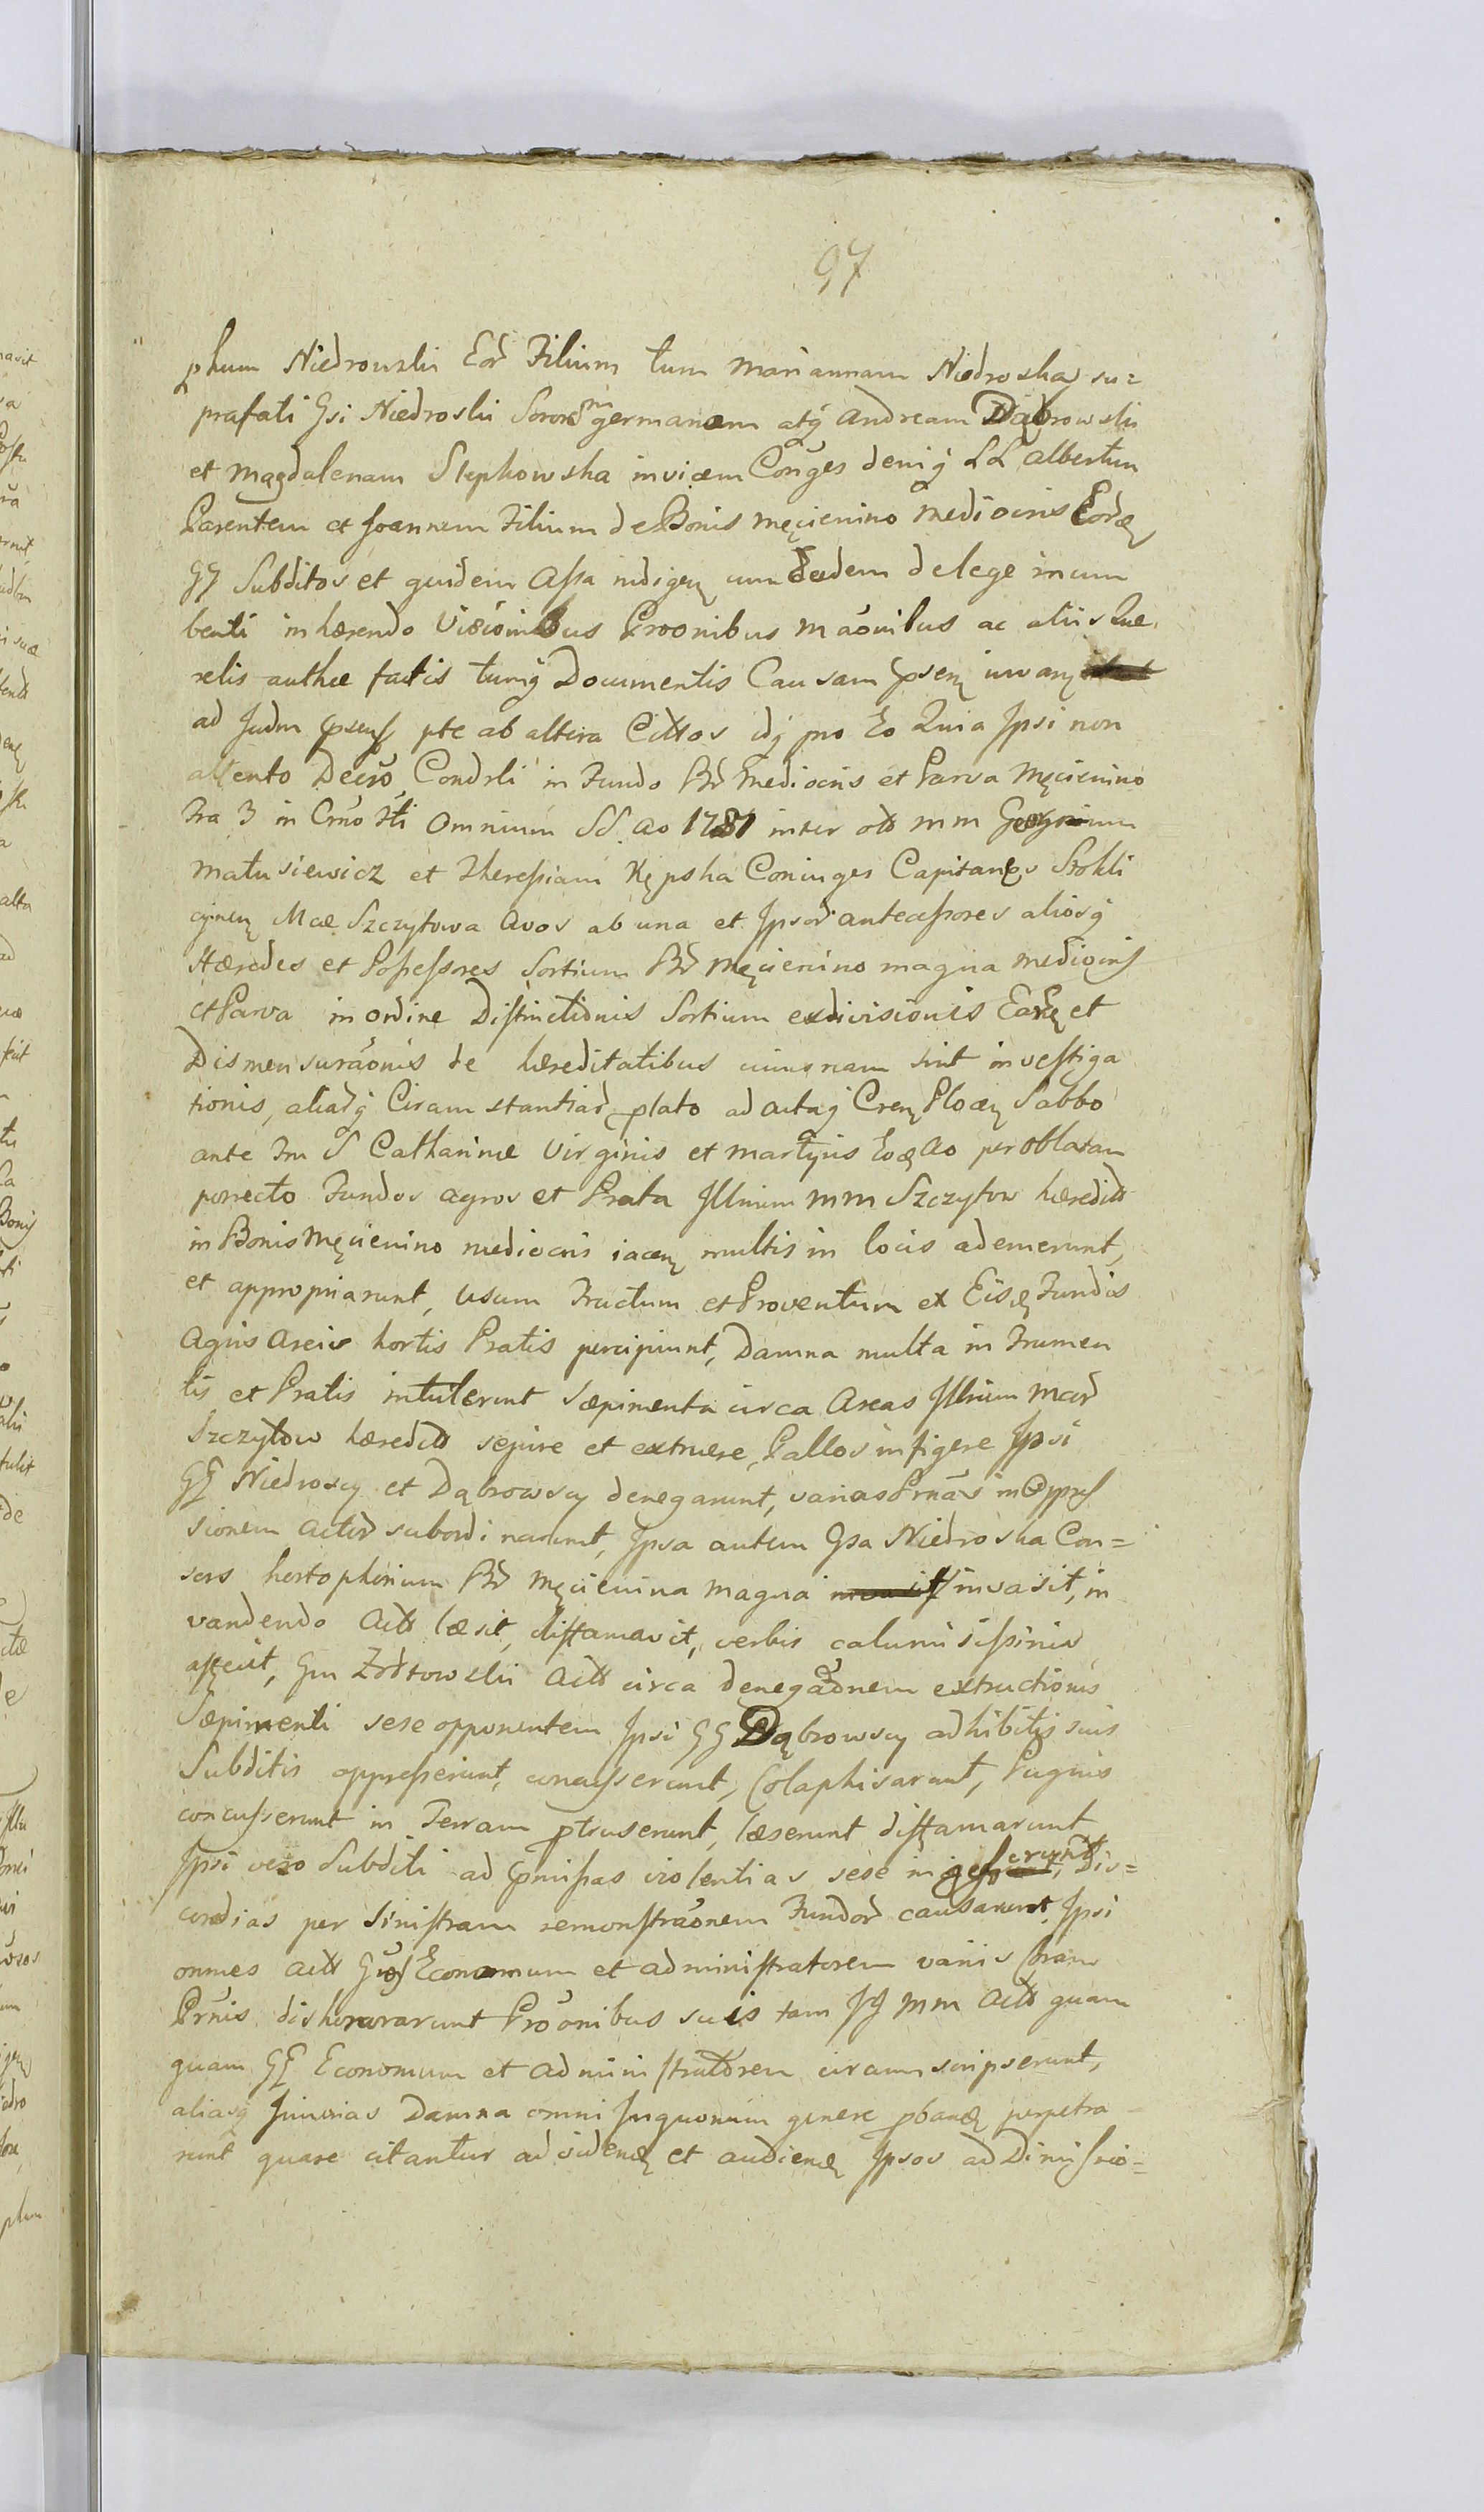 97
phum Niedrowski Eor Filium tum Mariannam Niedroska su=
prafati Gsi Niedroski Sororem germanam atq Andream Dąbrowski
et Magdalenam Slepkowska invicem Conges deniq LL Albertum
Parentem et Joannem Filium de Bonis Męcienino mediocris
GG Subditos et quidem Assa indigen cum Eadem de lege incum
benti inhærendo Visionibus Proonibus Maonibus ac aliis Que
relis authce factis tumq Documentis Causam psen iuvan
ad Judm psens pte ab altera Citto idq pro Eo Quia Ipsi non
attento Decro Condrli in Fundo Br Mediocris et Parva Męcienino
Fra 3 in Crno Fti Omnium SS. Ao 1781 inter otto mm Georgium
Matusiewicz et Theressiam Kępska Coniuges Capitaneos Stokli
cynen Mcæ Szczytowa Avos ab una et Ipsor antecessores aliosq
Hæredes et Possessores Sortium Br Męcienino magna mediocris
et Parva in ordine Distinctionis Sortium exdivisionis Earu et
Dismensuraonis de hæreditatibus cuiusnam sint investiga
tionis, aliarq Circumstantiar plato ad actaq Cren Ploceu Sabbo
ante Fm S Catharinæ Virginis et Martyris Eoo Ao per oblatam
porrecto Fundos agros et Prata Illrium mm Szczytow hæredit
in Bonis Męcienino mediocris iacen multis in locis ademerunt,
et appropriarunt, usum Fructum et Proventum ex Eisd Fundis
Agris Areis hortis Pratis percipiunt, Damna multa in Frumen
tis et Pratis intulerunt Sæpimenta circa Areas Illrium Mcor
Szczytow hæredit sepire et extruere, Pallos infigere Ipsi
GG Niedroscy et Dąbrowscy denegarunt, varias Prnas in Oppres
sionem Actor subordinarunt, Ipsa autem Gsa Niedroska Con=
sors hortophinium Br Męcienina Magna invasit, in
vandendo Acto læsit, diffamavit, verbis calumisissinis
affecit, Gm Zdrowski Acto circa denegaonem extructionis
Sæpimenti sese opponentem Ipsi GG Dąbrowscy adhibitis suis
Subditis oppresserunt, concusserunt, Colaphisarunt, Pugnis
concusserunt in Terram ptruserunt, læserunt diffamarunt
Ipsi vero Subditi ad pmissas violentias sese ingesserunt, Dis=
cordias per Sinistram remonstraonem Fundor causarunt, Ipsi
omnes Acto Economum et administratorem variis Coram
Prnis dishonorarunt Proonibus suis tam JJ mm Acto quam
quam GG Economum et administratorem circumscripserunt,
aliasq Iniurias Damna omni Iurquonum genere pband perpetra
runt quare citantur ad videnæ et audiendæ Ipsos ad Dimissio=